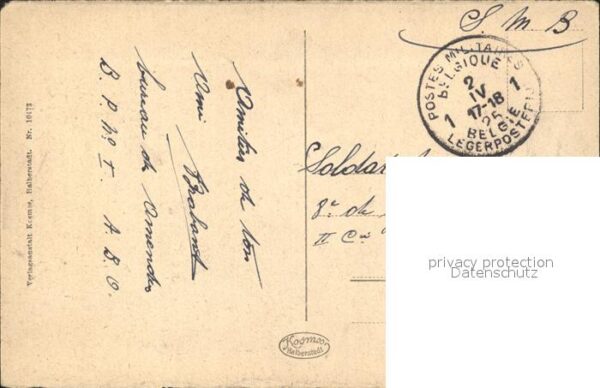 Verlagsanstalt Kosmos, Halberstadt. Nr. 10173
Amitiés de ton
Ami
Brabant
bureau de
B. P. No I. A. B. O.
S. M B
POSTES MILITAIRES
BELGIQUE
1 2 1
IV
17-18
25
BELGIE
LEGERPOSTERIJ
Soldat
8e de
II Cie
Kosmos
Halberstadt
privacy protection
Datenschutz